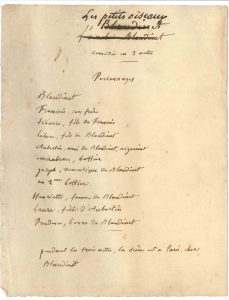 Les petits oiseaux
Blandinet
Blandinet
comédie en 3 actes
Personnages
Blandinet
François, son frère
Tiburce, fils de François
fils de Blandinet
Aubertin, ami de Blandinet, négociant
Mizabran, bottier
Joseph, domestique de Blandinet
un 2me bottier
Henriette, femme de Blandinet
Laure, fille d'Aubertin
Prudence, bonne de Blandinet
pendant les trois actes, la scène est à Paris, chez
Blandinet